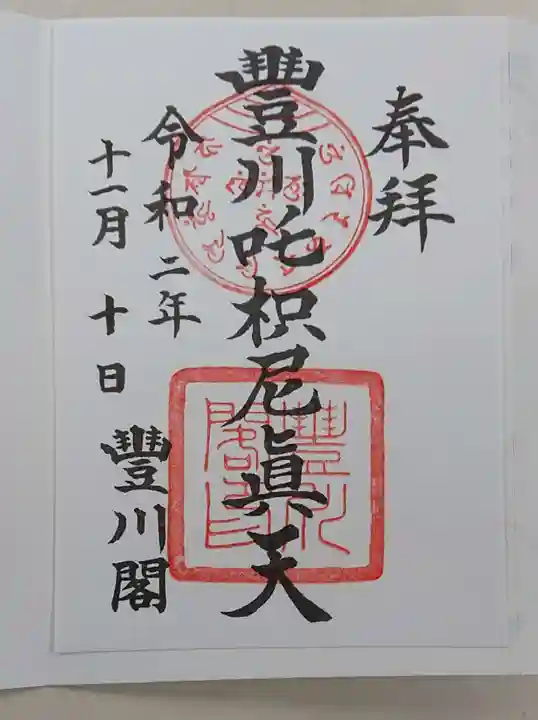 奉拝
豐川吒枳尼眞天
令和二年
十一月十日
豐川閣
豐川閣印